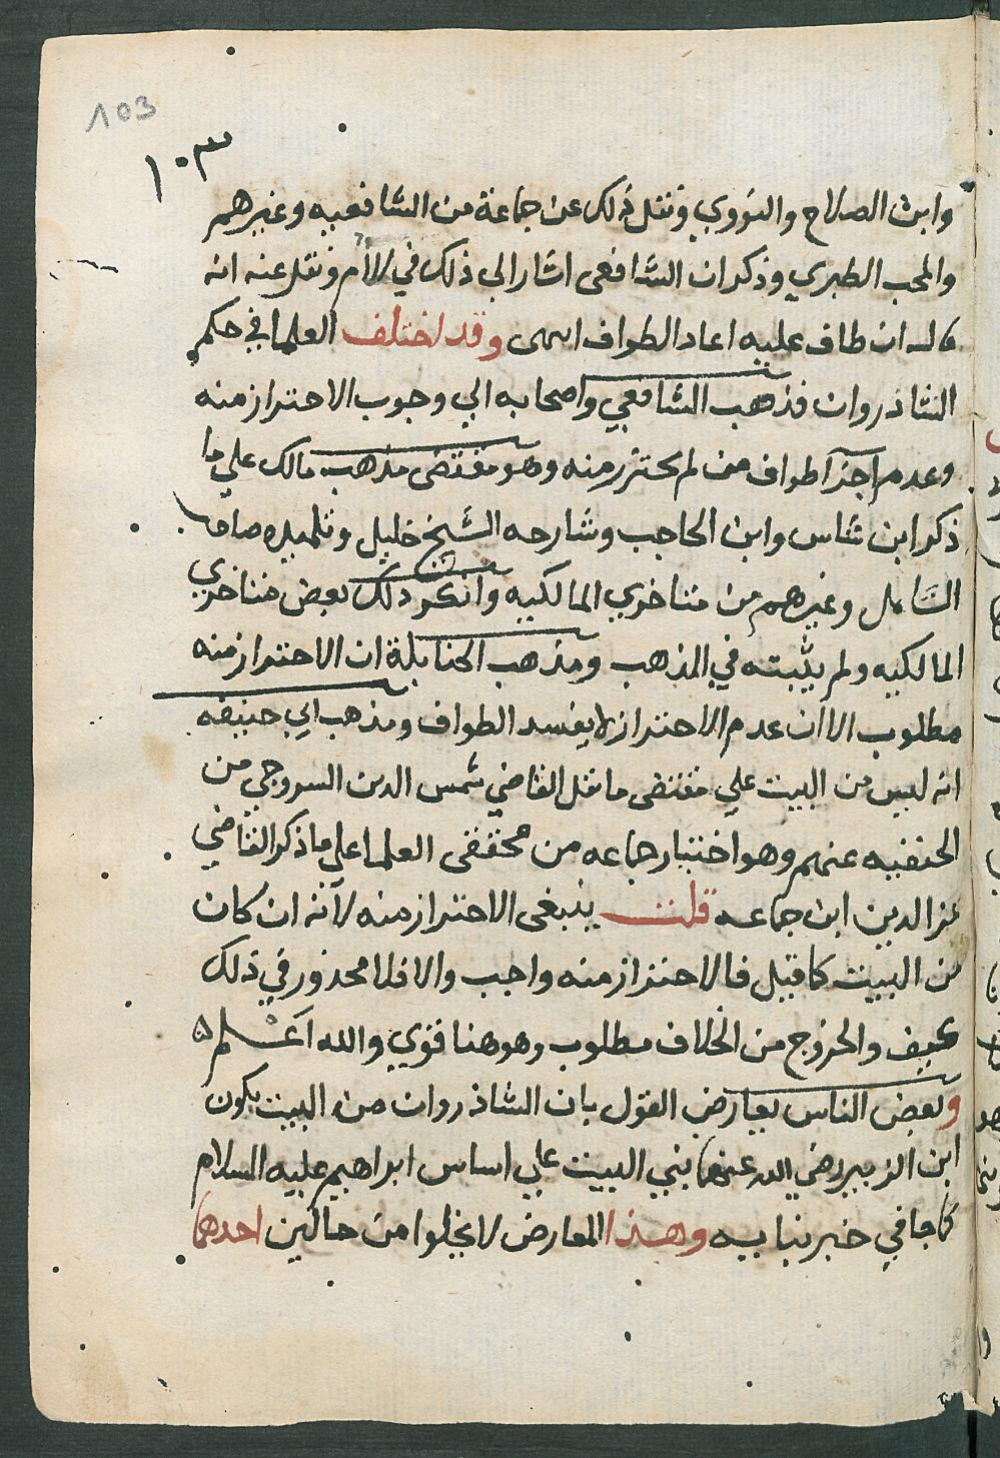 103
١٠٣
وابن الصلاح والنووي ونقل ذلك عن جماعة من الشافعيه وغيرهم
والمحب الطبري وذكر ان الشافعى اشار الى ذلك في الام ونقل عنه انه
قال ان طاف عليه اعاد الطواف انتهى وقد اختلف العلما في حكم
الشاذروان فذهب الشافعي واصحابه الي وجوب الاحتراز منه
وعدم اجزآ طواف من لم يحترز منه وهو مقتضى مذهب مالك على ما
ذكر ابن شاس وابن الحاجب وشارحه الشيخ خليل وتلميذه صاحب
الشامل وغيرهم من متاخري المالكيه وانكر ذلك بعض متاخري
المالكيه ولم يثبته في المذهب ومذهب الحنابلة ان الاحتراز منه
مطلوب الا ان عدم الاحتراز لا يفسد الطواف ومذهب ابي حنيفه
انه ليس من البيت علي مقتضى ما نقل القاضي شمس الدين السروجي من
الحنفيه عنهم وهو اختيار جماعه من محققى العلما على ما ذكر القاضي
عز الدين ابن جماعه قلت ينبغى الاحتراز منه لآنه ان كان
من البيت كما قيل فالاحتراز منه واجب والا فلا محذور في ذلك
كيف والخروج من الخلاف مطلوب وهو هنا قوي والله اعلم ه
وبعض الناس يعارض القول بان الشاذروان من البيت بكون
ابن الزبير رضي الله عنهما بني البيت علي اساس ابراهيم عليه السلام
كما جا في خبر بنايه وهذا المعارض لا يخلوا من حالين احدهما